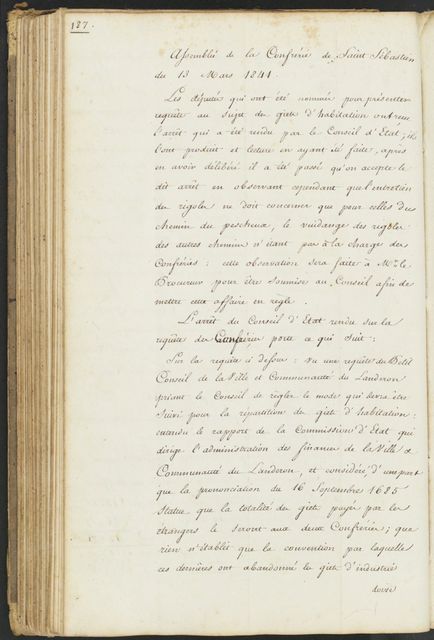 187.
Assemblé de la Confrérie de Saint Sébastien
du 13 Mars 1841.
Les députés qui ont été nommés pour présenter
requête au sujet du giete d'habitation ont reçu
l'arrêt qui a été rendu par le Conseil d'Etat; ils
l'ont produit et lecture en ayant été faite, après
en avoir délibéré il a été passé qu'on accepte le
dit arrêt en observant cependant que l'entretien
des rigoles ne doit concerner que pour celles du
chemin du pescheux, le vuidange des rigoles
des autres chemin n'étant pas à la charge des
Confréries: cette observation sera faite à Mr le
Procureur pour être soumise au Conseil afin de
mettre cette affaire en règle.
L'arrêt du Conseil d'Etat rendu sur la
requête des Confréries porte ce qui suit:
Sur la requête ci dessus: vu une requête du Petit
Conseil de la Ville et Communauté du Landeron
priant le Conseil de régler le mode qui devra être
suivi pour la répartition du giete d'habitation:
entendu le rapport de la Commission d'Etat qui
dirige l'administration des finances de la Ville &
Communauté du Landeron, et considéré, d'une part
que la prononciation du 16 Septembre 1685
statue que la totalité du giete payer par les
étrangers le seront aux deux Confréries; que
rien n'établit que la convention par laquelle
ces dernières ont abandonné la giete d'industrie